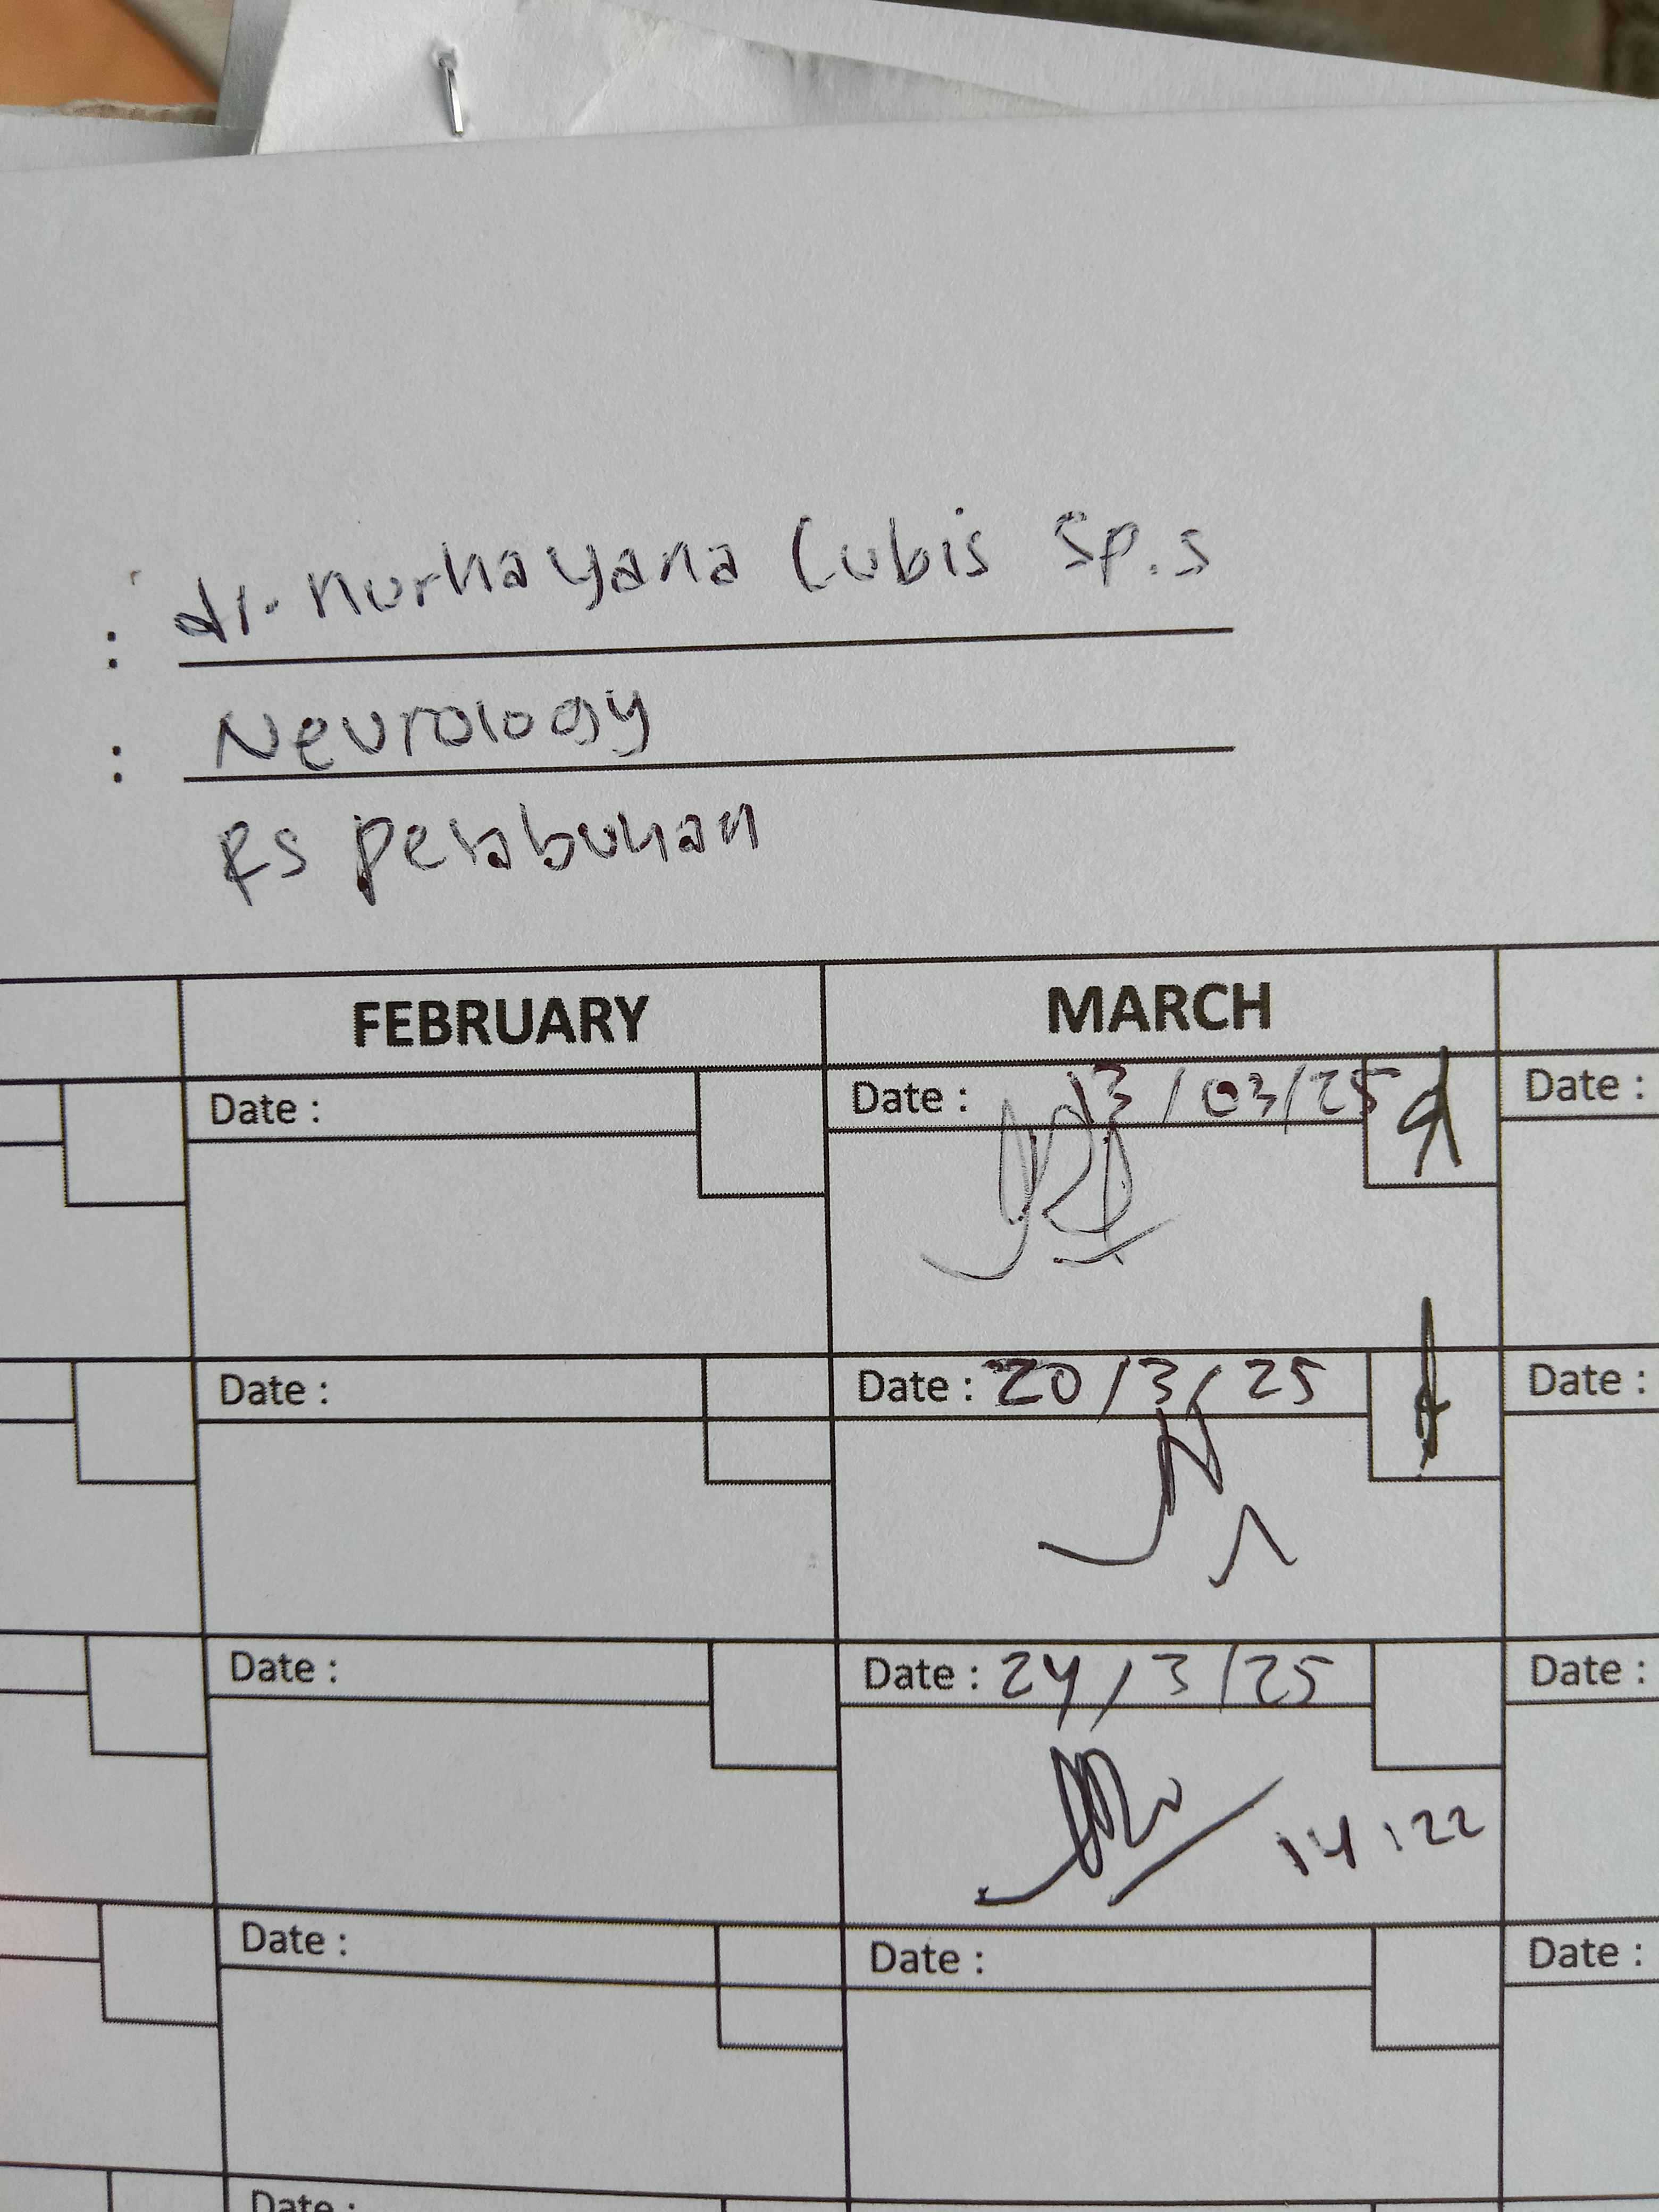 : dr. Nurhayana Lubis Sp.S
: Neurology
RS pelabuhan
FEBRUARY MARCH
Date : Date : 13/03/25 Date :
Date : Date : 20/3/25 Date :
Date : Date : 24/3/25 Date :
14:22
Date : Date : Date :
Date :